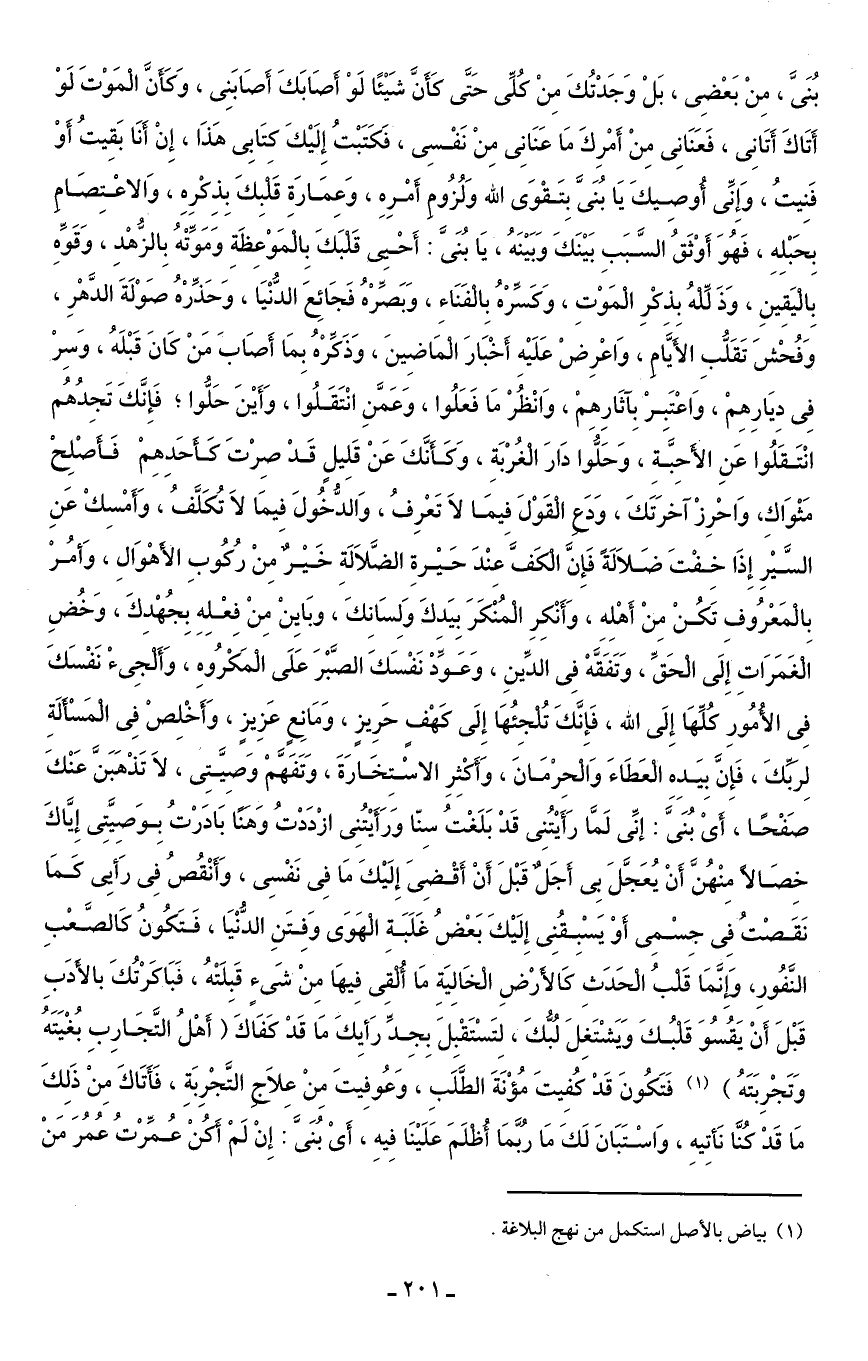 بُنَىَّ ، مِنْ بَعْضِى ، بَلْ وَجَدْتُكَ مِنْ كُلِّى حَتَّى كَأَنَّ شَيْئًا لَوْ أَصَابَكَ أَصَابَنِى ، وَكَأَنَّ الْمَوْتَ لَوْ
أَتَاكَ أَتَانِى ، فَعَنَانِى مِنْ أَمْرِكَ مَا عَنَانِى مِنْ نَفْسِى ، فَكَتَبْتُ إِلَيْكَ كِتَابِى هَذَا ، إِنْ أَنَا بَقِيتُ أَوْ
فَنِيتُ ، وَإِنِّى أُوصِيكَ يَا بُنَىَّ بِتَقْوَى الله وَلُزُومِ أَمْرِهِ ، وَعِمَارَةِ قَلْبِكَ بِذِكْرِهِ ، وَالاعْتِصَامِ
بِحَبْلِهِ ، فَهُوَ أَوْثَقُ السَّبَبِ بَيْنَكَ وَبَيْنَهُ ، يَا بُنَىَّ : أَحْيِى قَلْبَكَ بِالْمَوْعِظَةِ وَمَوِّتْهُ بِالزُّهْدِ ، وَقَوِّهِ
بِالْيَقِينِ ، وَذَلِّلْهُ بِذِكْرِ الْمَوْتِ ، وَكَسِّرْهُ بِالْفَنَاءِ ، وَبَصِّرْهُ فَجَائِعَ الدُّنْيَا ، وَحَذِّرْهُ صَوْلَةَ الدَّهْرِ ،
وَفُحْشَ تَقَلُّبِ الأَيَّامِ ، وَاعْرِضْ عَلَيْهِ أَخْبَارَ الْمَاضِينَ ، وَذَكِّرْهُ بِمَا أَصَابَ مَنْ كَانَ قَبْلَهُ ، وَسِرْ
فِى دِيَارِهِمْ ، وَاعْتَبِرْ بِآثَارِهِمْ ، وَانْظُرْ مَا فَعَلُوا ، وَعَمَّنِ انْتَقَلُوا ، وَأَيْنَ حَلُّوا ؛ فَإِنَّكَ تَجِدُهُمُ
انْتَقَلُوا عَنِ الأَحِبَّةِ ، وَحَلُّوا دَارَ الْغُرْبَةِ ، وَكَأَنَّكَ عَنْ قَلِيلٍ قَدْ صِرْتَ كَأَحَدِهِمْ فَأَصْلِحْ
مَثْوَاكَ، وَاحْرِزْ آخِرَتَكَ ، وَدَعِ الْقَوْلَ فِيمَا لاَ تَعْرِفُ ، وَالدُّخُولَ فِيمَا لاَ تُكَلَّفُ ، وَأَمْسِكْ عَنِ
السَّيْرِ إِذَا خِفْتَ ضَلاَلَةً فَإِنَّ الْكَفَّ عِنْدَ حَيْرَةِ الضَّلاَلَةِ خَيْرٌ مِنْ رُكُوبِ الأَهْوَالِ ، وَأْمُرْ
بِالْمَعْرُوفِ تَكُنْ مِنْ أَهْلِهِ ، وَأَنْكِرِ الْمُنْكَرَ بِيَدِكَ وَلِسَانِكَ ، وَبَايِنْ مِنْ فِعْلِهِ بِجُهْدِكَ ، وَخُضِ
الْغَمَرَاتِ إِلَى الْحَقِّ ، وَتَفَقَّهْ فِى الدِّينِ ، وَعَوِّدْ نَفْسَكَ الصَّبْرَ عَلَى الْمَكْرُوهِ ، وَأَلْجِىءْ نَفْسَكَ
فِى الأُمُورِ كُلِّهَا إِلَى الله ، فَإِنَّكَ تُلْجِئُهَا إِلَى كَهْفٍ حَرِيزٍ ، وَمَانِعٍ عَزِيزٍ ، وَأَخْلِصْ فِى الْمَسْأَلَةِ
لِرَبِّكَ ، فَإِنَّ بِيَدِهِ الْعَطَاءَ وَالْحِرْمَانَ ، وَأَكْثِرِ الاسْتِخَارَةَ ، وَتَفَهَّمْ وَصِيَّتِى ، لاَ تَذْهَبَنَّ عَنْكَ
صَفْحًا ، أَىْ بُنَىَّ : إِنِّى لَمَّا رَأَيْتُنِى قَدْ بَلَغْتُ سِنّا وَرَأَيْتُنِى ازْدَدْتُ وَهَنًا بَادَرْتُ بِوَصِيَّتِى إِيَّاكَ
خِصَالاً مِنْهُنَّ أَنْ يُعَجَّلَ بِى أَجَلٌ قَبْلَ أَنْ أَقْضِىَ إِلَيْكَ مَا فِى نَفْسِى ، وَأَنْقُصُ فِى رَأْيِى كَمَا
نَقَصْتُ فِى جِسْمِى أَوْ يَسْبِقُنِى إِلَيْكَ بَعْضُ غَلَبَةِ الْهَوَى وَفِتَنِ الدُّنْيَا ، فَتَكُونُ كَالصَّعْبِ
النَّفُورِ، وَإِنَّمَا قَلْبُ الْحَدَثِ كَالأَرْضِ الْخَالِيَةِ مَا أُلْقِى فِيهَا مِنْ شَىءٍ قَبِلَتْهُ ، فَبَاكَرْتُكَ بِالأَدَبِ
قَبْلَ أَنْ يَقْسُوَ قَلْبُكَ وَيَشْتَغِلَ لُبُّكَ ، لِتَسْتَقْبِلَ بِجِدِّ رَأْيِكَ مَا قَدْ كَفَاكَ ( أَهْلُ التَّجَارِبِ بُغْيَتَهُ
وَتَجْرِبَتَهُ ) (١) فَتَكُونَ قَدْ كُفِيتَ مُؤْنَةَ الطَّلَبِ ، وَعُوفِيتَ مِنْ عِلاَجِ التَّجْرِبَةِ ، فَأَتَاكَ مِنْ ذَلِكَ
مَا قَدْ كُنَّا نَأْتِيهِ ، وَاسْتَبَانَ لَكَ مَا رُبَّمَا أَظْلَمَ عَلَيْنَا فِيهِ ، أَىْ بُنَىَّ : إِنْ لَمْ أَكُنْ عُمِّرْتُ عُمُرَ مَنْ
(١) بياض بالأصل استكمل من نهج البلاغة .
ـ ٢٠١ ـ